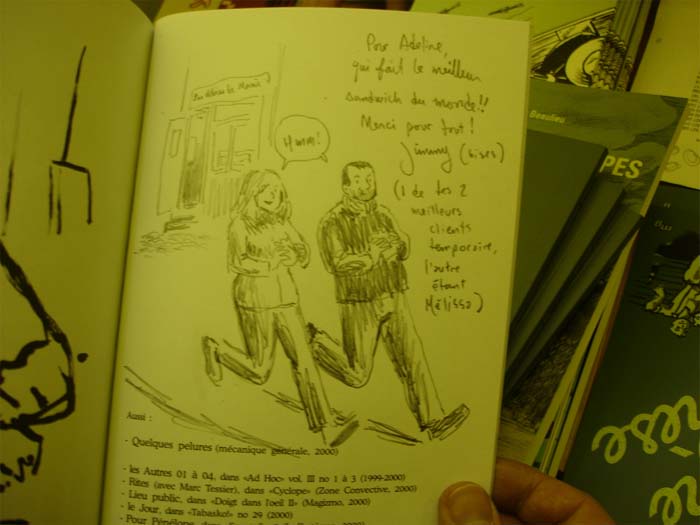 Pour Adeline,
qui fait le meilleur
sandwich du monde!!
Merci pour tout!
Jimmy (bises)
(1 de tes 2
meilleurs
clients
temporaire,
l'autre
étant
Mélissa)
Hmm!
Aussi :
- Quelques pelures (mécanique générale, 2000)
- les Autres 01 à 04, dans «Ad Hoc» vol. III no 1 à 3 (1999-2000)
- Rites (avec Marc Tessier), dans «Cyclope» (Zone Convective, 2000)
- Lieu public, dans «Doigt dans l'oeil II» (Magizmo, 2000)
- le Jour, dans «Tabasko!» no 29 (2000)
- Pour Pénélope, dans
Beaulieu
PES